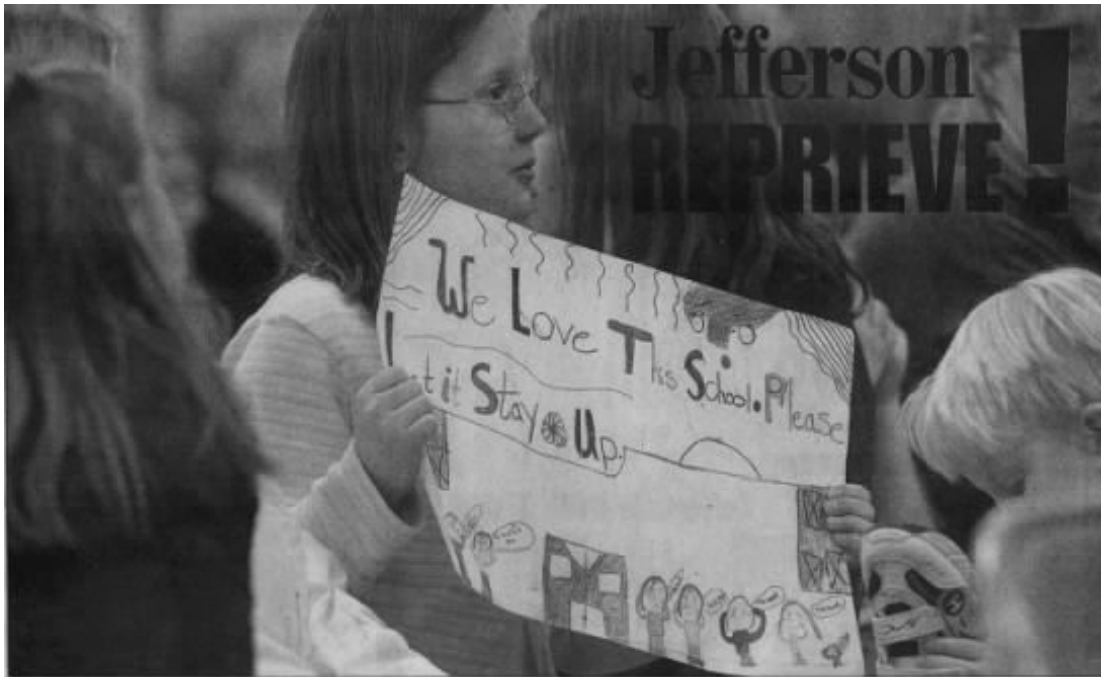 Jefferson
REPRIEVE!
We Love This School. Please
it Stay Up.